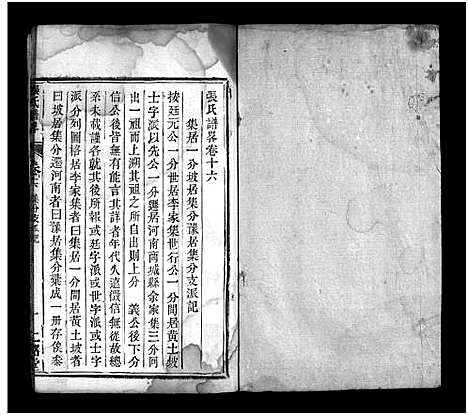 張氏譜畧卷十六
集居一分坡居集分豫居集分支派記
按廷元公一分世居李家集世行公一分間居黄土坡
士字派以先公一分遷居河南商城縣余家集三分同
出一祖而上溯其祖之所自出則上分 義公後下分
信公後皆無有能言其詳者年代久遠徵信無從故總
系未載謹就其後所報或廷字派或世字派或士字
派分列圖格居李家集者曰集居一分間居黄土坡者
曰坡居集分遷河南者曰豫居集分彙成一册存俟叅